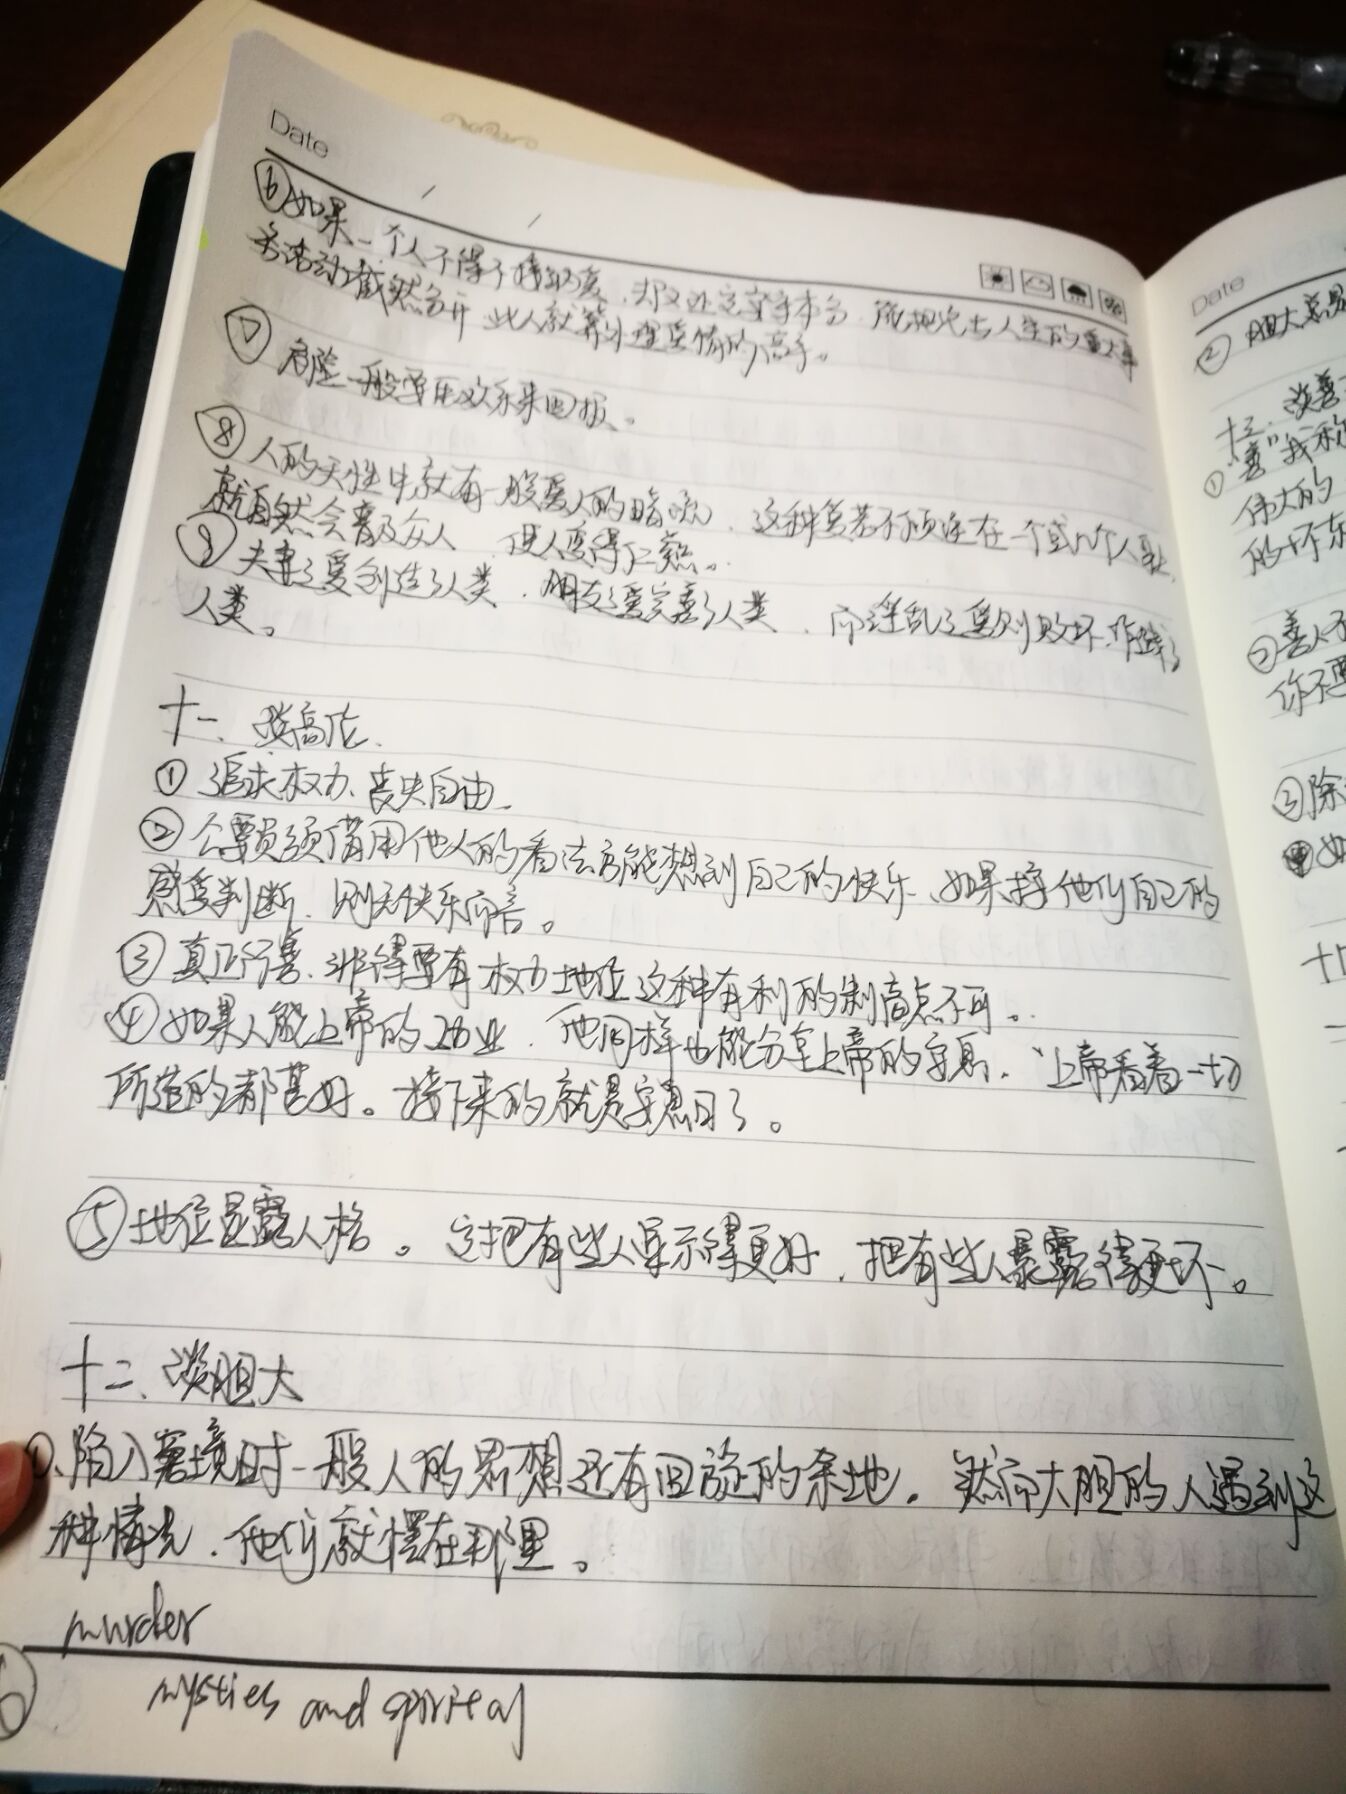 Date
⑥如果一个人不得不接纳爱,却又让它安守本分,能把它与人生的重大事
务活动截然分开,此人就算处理爱情的高手。
⑦危险一般要用欢乐来回报。
⑧人的天性中就有一股爱人的暗流,这种爱若不倾注在一个或几个人身上,
就自然会普及众人,使人变得仁慈。
⑨夫妻之爱创造了人类,朋友之爱完善了人类,而淫乱之爱则败坏、作践了
人类。
十一、谈高位.
①追求权力、丧失自由.
②个要员须借用他人的看法方能想到自己的快乐、如果按他们自己的
感受判断,则无快乐而言。
③真正行善、非得要有权力地位这种有利的制高点不可。
④如果人能上帝的功业,他同样也能分享上帝的安息,“上帝看着一切
所造的都甚好。接下来的就是安息日了。
⑤地位显露人格。它把有些人显示得更好,把有些人暴露得更坏。
十二、谈胆大
①、陷入窘境时一般人的思想还有回旋的余地。然而大胆的人遇到这
种情况,他们就愣在那里。
murder
mysties and spirital
Date
②胆大
十三、谈善
①“善”我
伟大的
的坏东
②善人不
你不要
③除
④如
十四